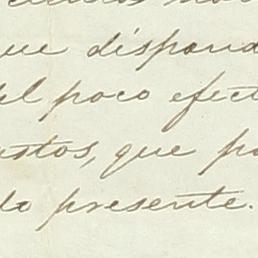 que dispond
del poco efect
astos, que po
do presente.